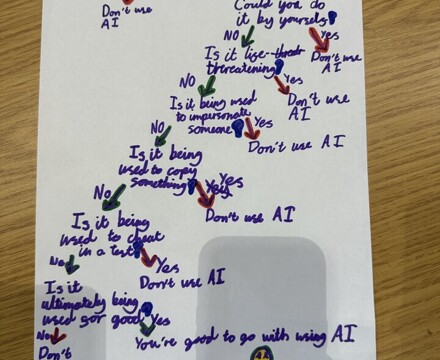 Don't use
AI
Could you do
it by yourself?
NO
Yes
Don't use
AI
Is it life
threatening?
NO
Yes
Don't use
AI
Is it being used
to impersonate
someone?
NO
Yes
Don't use AI
Is it being
used to copy
something?
No
Yes
Don't use AI
Is it being
used to cheat
in a test?
No
Yes
Don't use AI
Is it
ultimately being
used for good?
No
Yes
Don't
You're good to go with using AI